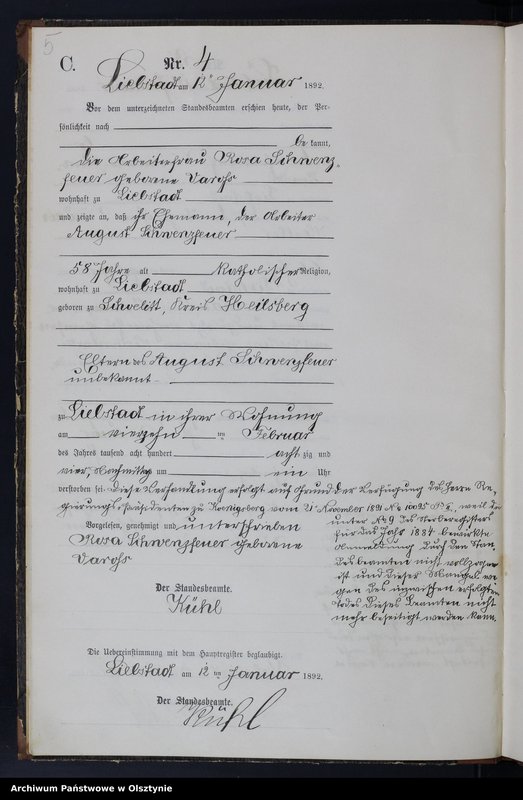 5
C.
Nr. 4
Liebstadt am 12ten Januar 1892.
Vor dem unterzeichneten Standesbeamten erschien heute, der Per-
sönlichkeit nach
be kannt,
die Arbeiterfrau Rosa Schwenz-
feuer geborene
wohnhaft zu Liebstadt
und zeigte an, daß ihr Ehemann, der Arbeiter
August Schwenzfeuer
58 Jahre alt katholischer Religion,
wohnhaft zu Liebstadt
geboren zu Kreis Heilsberg
Eltern des August Schwenzfeuer
unbekannt
zu Liebstadt in ihrer Wohnung
am vierzehn ten Februar
des Jahres tausend acht hundert acht zig und
vier, Nachmittag um ein Uhr
verstorben sei. Diese Verhandlung erfolgt auf Grund der Verfügung des Herrn Re-
gierungs-Präsidenten zu Koenigsberg vom November 1891 weil die
unter No 9 des Sterberegisters
für das Jahr 1884 bewirkte
Anmeldung durch den Stan-
desbeamten nicht vollzogen
ist und dieser Mangel we-
gen des inzwischen erfolgten
Todes dieses Beamten nicht
mehr beseitigt werden kann.
Vorgelesen, genehmigt und unterschrieben
Rosa Schwenzfeuer geborene
Der Standesbeamte.
Kühl
Die Uebereinstimmung mit dem Hauptregister beglaubigt.
Liebstadt am 12 ten Januar 1892.
Der Standesbeamte.
Kühl
Archiwum Państwowe w Olsztynie